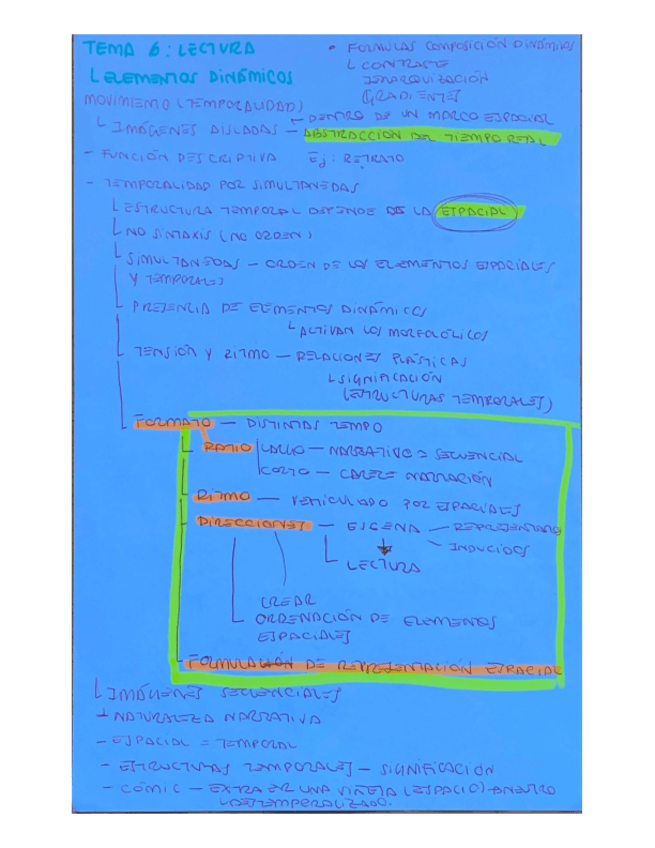 TEMA 6: LECTURA
• FORMULAS COMPOSICIÓN DINÁMICAS
L ELEMENTOS DINÁMICOS
L CONTRASTE
JERARQUIZACIÓN
GRADIENTES
MOVIMIENTO (TEMPORALIDAD)
DENTRO DE UN MARCO ESPACIAL
L IMÁGENES AISLADAS — ABSTRACCIÓN DEL TIEMPO REAL
- FUNCIÓN DESCRIPTIVA Ej: RETRATO
- TEMPORALIDAD POR SIMULTANEDAS
L ESTRUCTURA TEMPORAL DEPENDE DE LA ESPACIAL
L NO SINTAXIS (NO ORDEN)
L SIMULTANEDAS — ORDEN DE LOS ELEMENTOS ESPACIALES
Y TEMPORALES
L PRESENCIA DE ELEMENTOS DINÁMICOS
L ACTIVAN LOS MORFOLÓLICOS
L TENSIÓN Y RITMO — RELACIONES PLÁSTICAS
L SIGNIFICACIÓN
(ESTRUCTURAS TEMPORALES)
L FORMATO — DISTINTAS TEMPO
RATIO LARGO — NARRATIVO = SECUENCIAL
CORTO — CARECE NARRACIÓN
RITMO — VEHICULADO POR ESPACIALES
DIRECCIONES — ESCENA — REPRESENTADOS
INDUCIDOS
L LECTURA
CREAR
L ORDENACIÓN DE ELEMENTOS
ESPACIALES
FORMULACIÓN DE REPRESENTACIÓN ESPACIAL
L IMÁGENES SECUENCIALES
- NATURALEZA NARRATIVA
- ESPACIAL = TEMPORAL
- ESTRUCTURAS TEMPORALES — SIGNIFICACIÓN
- CÓMIC — EXTRAER UNA VIÑETA (ESPACIO)
DESTEMPORALIZADO.